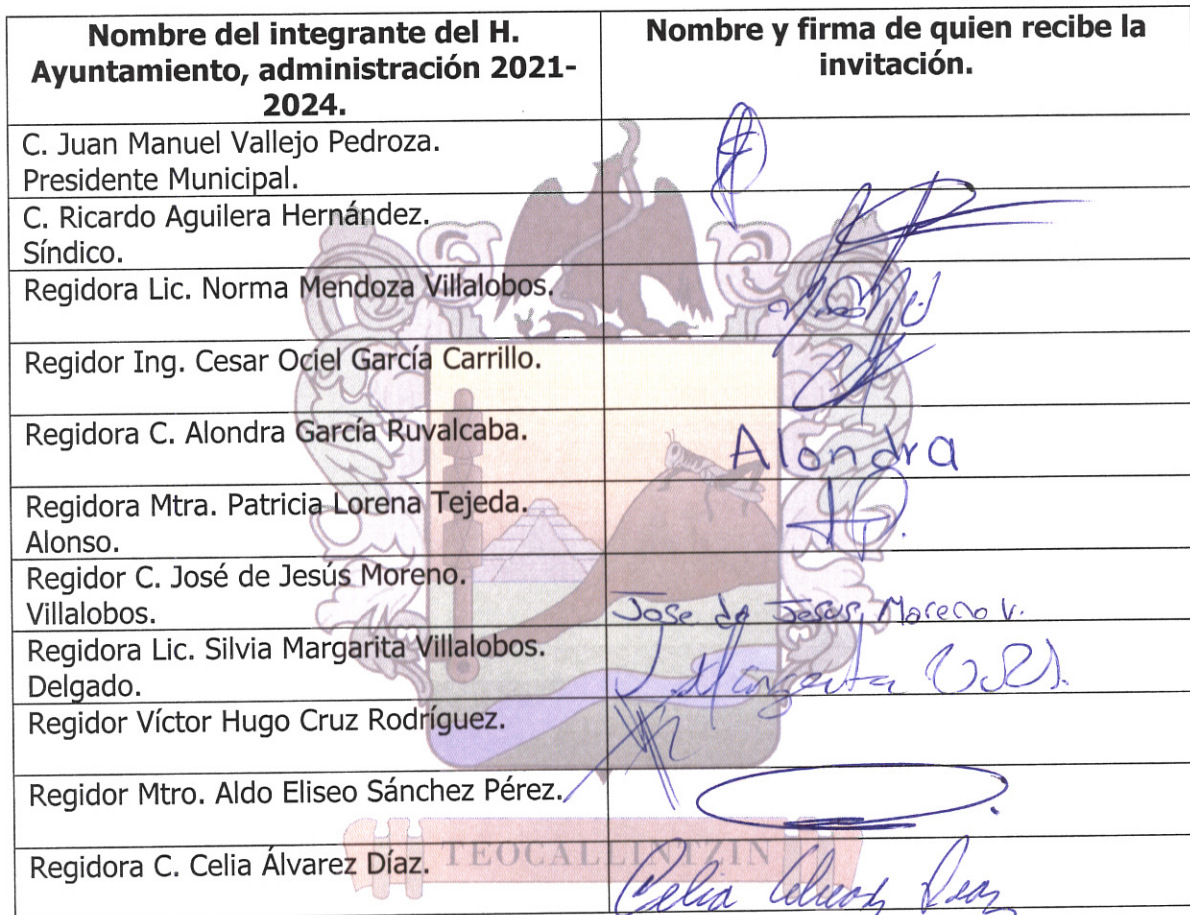 Nombre del integrante del H.
Ayuntamiento, administración 2021-
2024.
Nombre y firma de quien recibe la
invitación.
C. Juan Manuel Vallejo Pedroza.
Presidente Municipal.
C. Ricardo Aguilera Hernández.
Síndico.
Regidora Lic. Norma Mendoza Villalobos.
Regidor Ing. Cesar Ociel García Carrillo.
Regidora C. Alondra García Ruvalcaba.
Alondra
Regidora Mtra. Patricia Lorena Tejeda.
Alonso.
Regidor C. José de Jesús Moreno.
Villalobos.
Jose de Jesus Moreno V.
Regidora Lic. Silvia Margarita Villalobos.
Delgado.
Margarita
Regidor Víctor Hugo Cruz Rodríguez.
Regidor Mtro. Aldo Eliseo Sánchez Pérez.
Regidora C. Celia Álvarez Díaz.
Celia
TEOCALLINTZIN